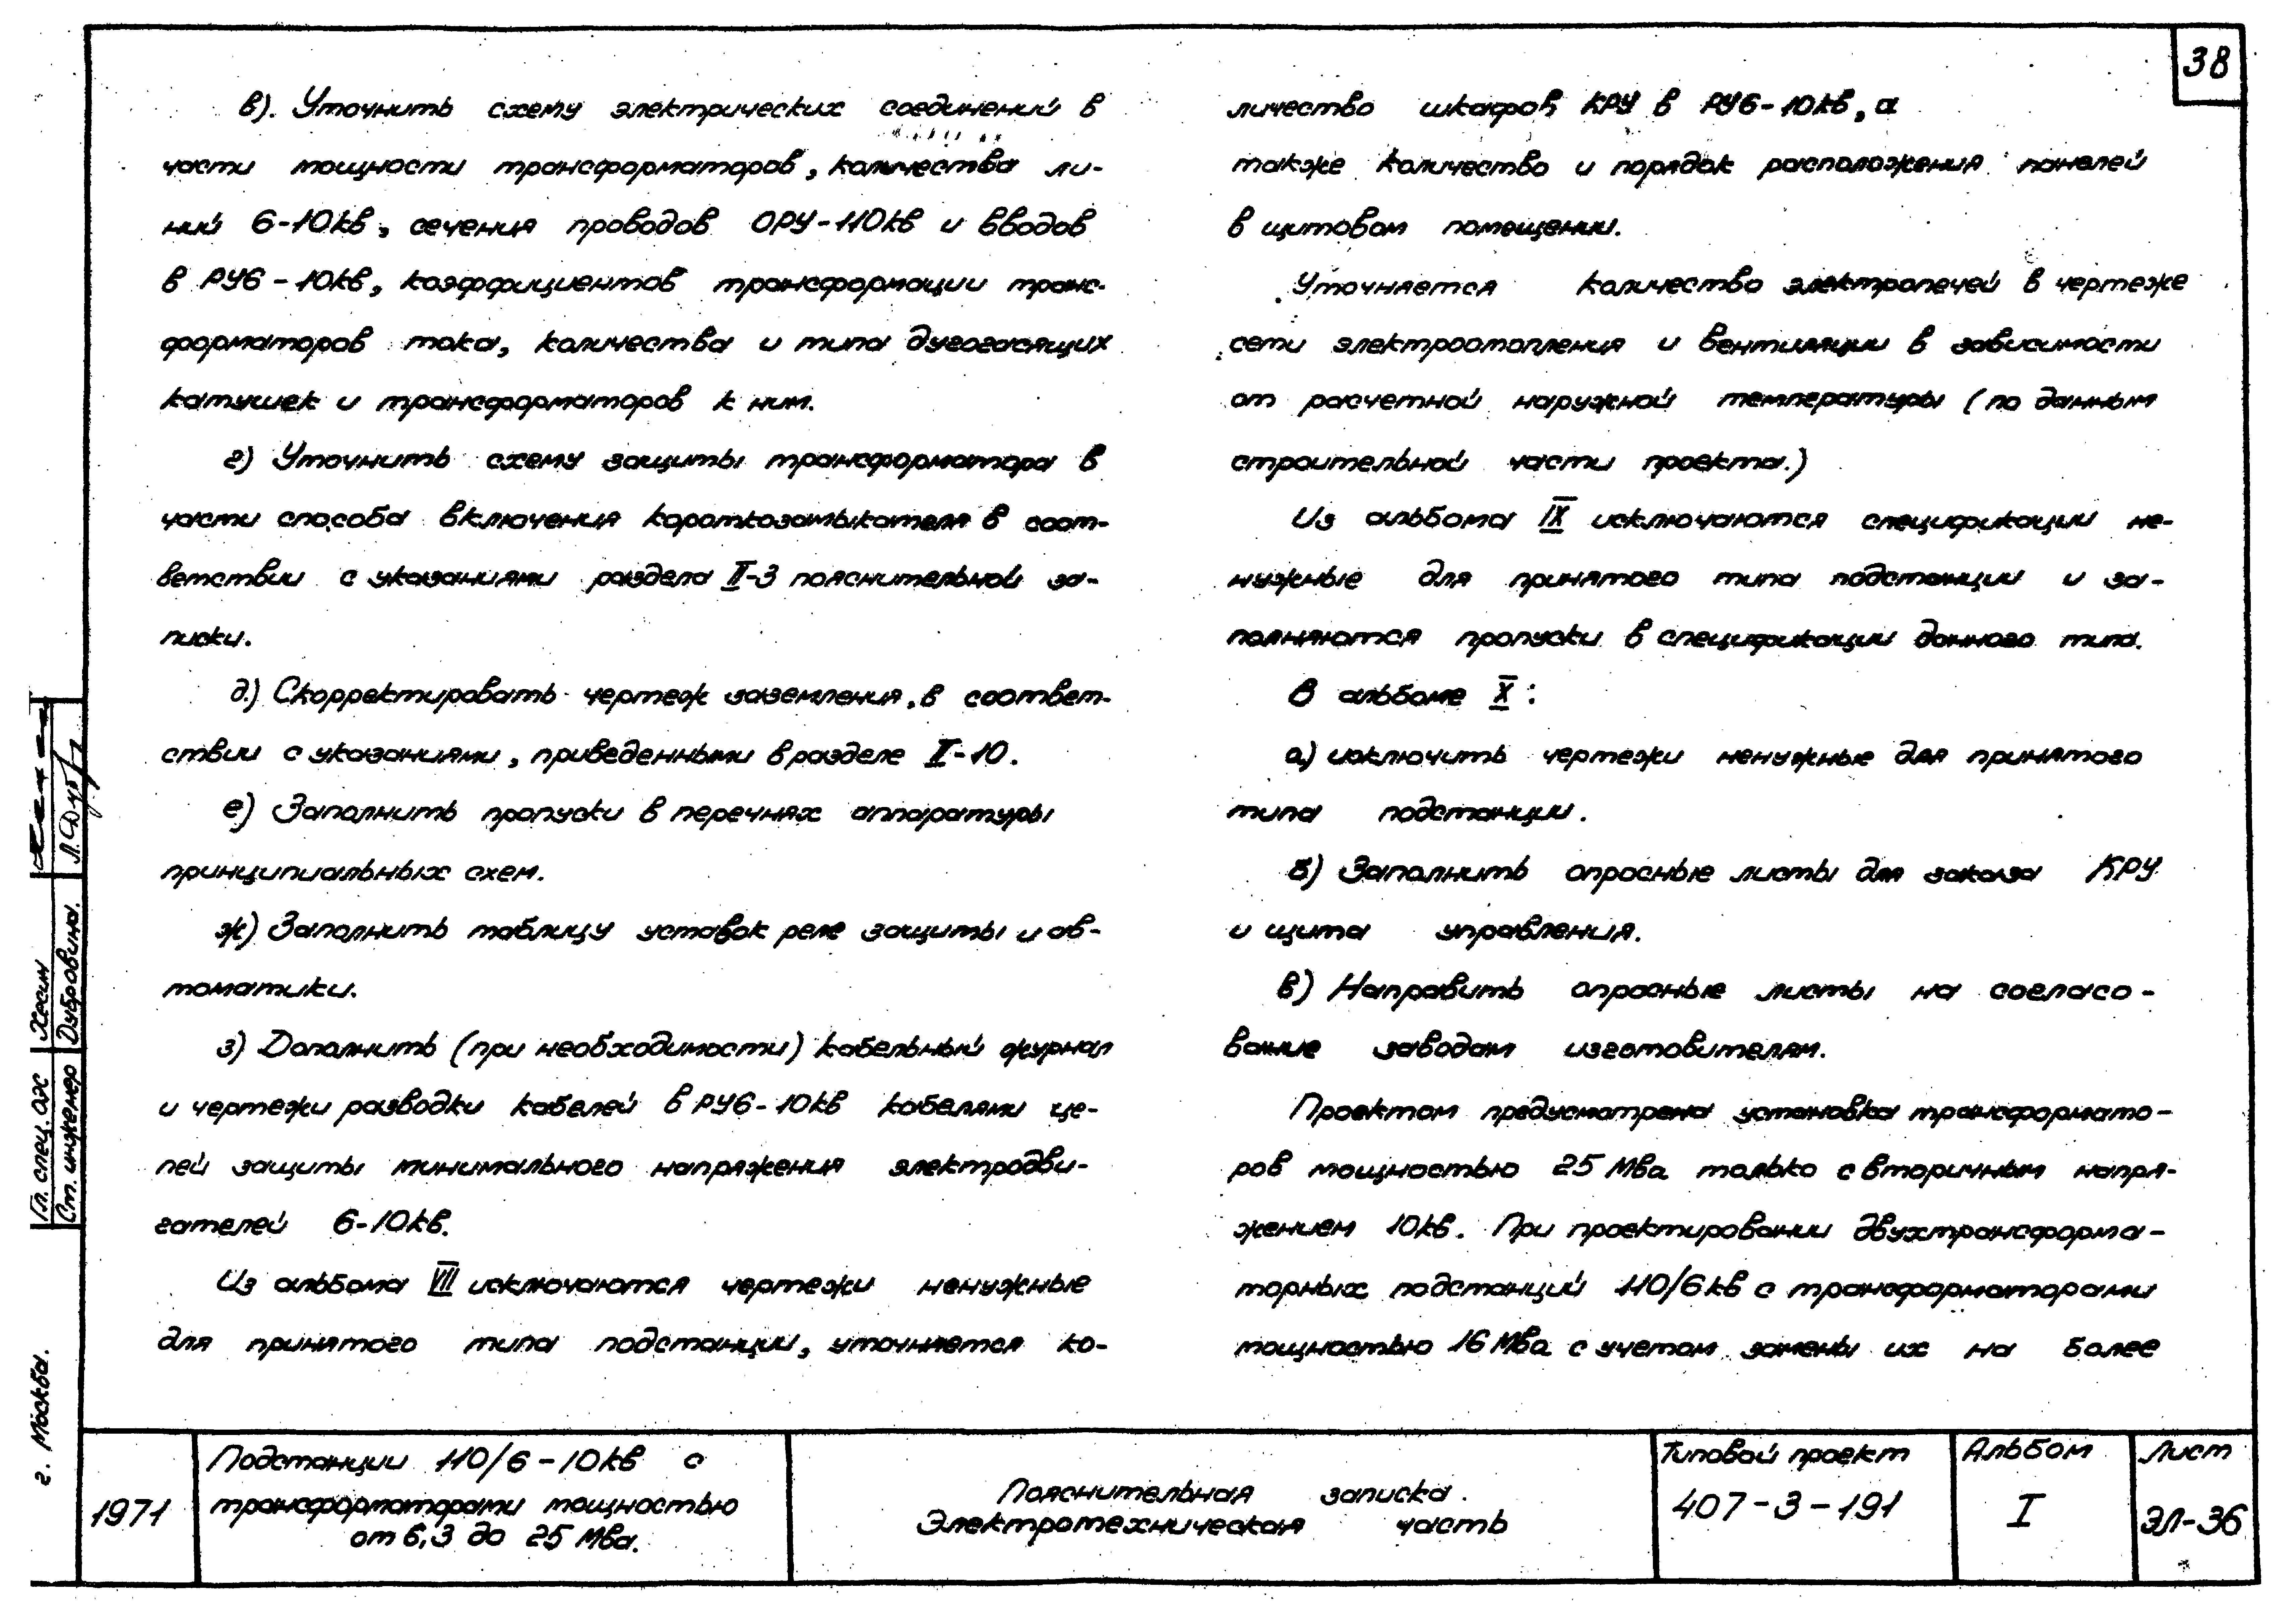 38
в). Уточнить схему электрических соединений в
части мощности трансформаторов, количества ли-
ний 6-10кв, сечения проводов ОРУ-110кв и вводов
в РУ6-10кв, коэффициентов трансформации транс-
форматоров тока, количества и типа дугогасящих
катушек и трансформаторов к ним.
г) Уточнить схему защиты трансформатора в
части способа включения короткозамыкателя в соот-
ветствии с указаниями раздела II-3 пояснительной за-
писки.
д.) Скорректировать чертеж заземления, в соответ-
ствии с указаниями, приведенными в разделе II-10.
е) Заполнить пропуски в перечнях аппаратуры
принципиальных схем.
ж) Заполнить таблицу уставок реле защиты и ав-
томатики.
з) Дополнить (при необходимости) кабельный журнал
и чертежи разводки кабелей в РУ6-10кв кабелями це-
пей защиты минимального напряжения электродви-
гателей 6-10кв.
Из альбома VII исключаются чертежи ненужные
для принятого типа подстанции, уточняется ко-
личество шкафов КРУ в РУ6-10кв, а
также количество и порядок расположения панелей
в щитовом помещении.
Уточняется количество электропечей в чертеже
сети электроотопления и вентиляции в зависимости
от расчетной наружной температуры (по данным
строительной части проекта.)
Из альбома IX исключаются спецификации не-
нужные для принятого типа подстанции и за-
полняются пропуски в спецификации данного типа.
В альбоме X:
а) исключить чертежи ненужные для принятого
типа подстанции.
б) Заполнить опросные листы для заказа КРУ
и щита управления.
в) Направить опросные листы на согласо-
вание заводам изготовителям.
Проектом предусмотрена установка трансформато-
ров мощностью 25 Мва только с вторичным напря-
жением 10кв. При проектировании двухтрансформа-
торных подстанций 110/6кв с трансформаторами
мощностью 16 Мва с учетом замены их на более
Гл. спец. ОЭС Хесин
Ст. инженер Дубровина. Л. Дуб
г. Москва.
1971
Подстанции 110/6-10кв с
трансформаторами мощностью
от 6,3 до 25 Мва.
Пояснительная записка.
Электротехническая часть
Типовой проект
407-3-191
Альбом
I
Лист
ЭЛ-36